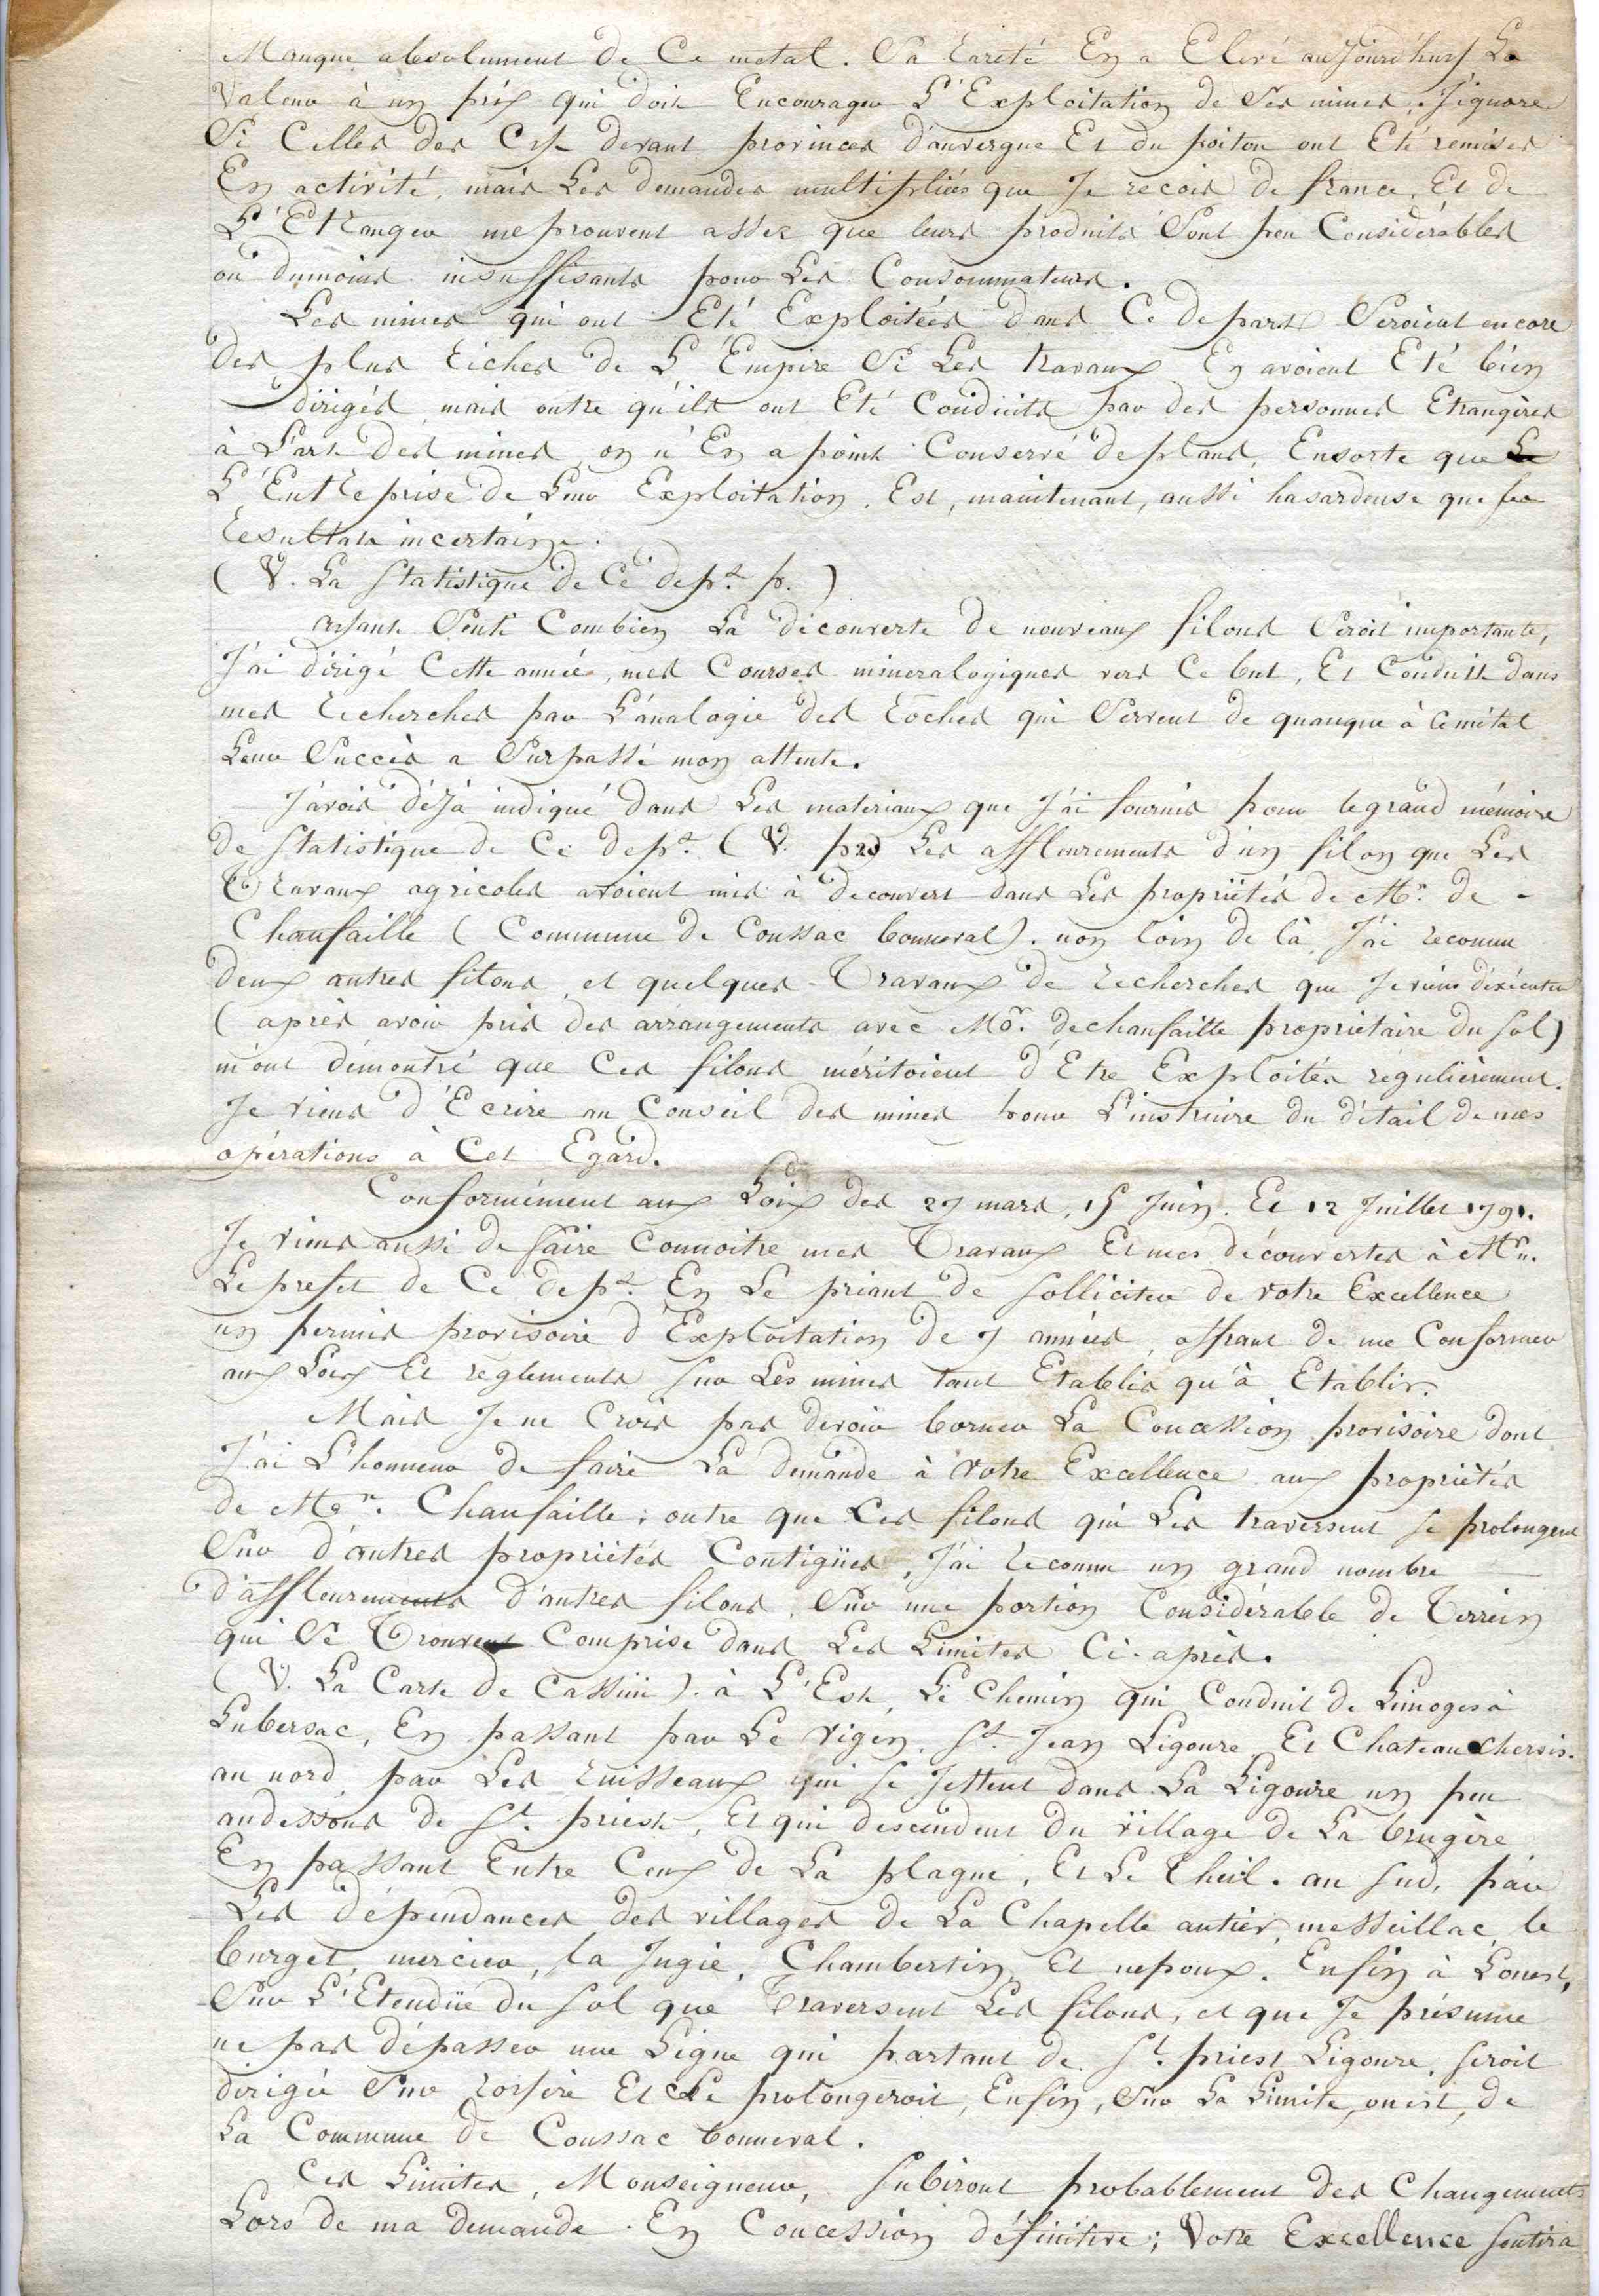 Manque absolument de Ce metal. Sa rareté En a Elevé aujourd'huy La
Valeur à un prix qui doit Encourager L'Exploitation de Ses mines. J'ignore
Si Celles des Cy-devant provinces d'auvergne Et du poitou ont Eté remises
En activité, mais Les demandes multipliées que Je recois de france, Et de
L'Etranger me prouvent assez que leurs produits Sont peu Considérables
ou dumoins insuffisants pour Les Consommateurs.
Les mines qui ont Eté Exploitées dans Ce depart. Seroient encore
des plus riches de L'Empire Si Les travaux En avoient Eté bien
dirigés mais outre qu'ils ont Eté Conduits par des personnes Etrangères
à L'art des mines, on n'En a point Conservé de plans, Ensorte que
L'Entreprise de Leur Exploitation, Est, maintenant, aussi hasardeuse que
resultats incertains.
(V. La Statistique de Ce dept. p. )
ayant Senti Combien La découverte de nouveaux filons Seroit importante,
J'ai dirigé Cette année, mes Courses mineralogiques vers Ce but, Et Conduit dans
mes recherches par L'analogie des roches qui Servent de guangue à Ce métal
Leur Succès a Surpassé mon attente.
J'avois déjà indiqué dans Les materiaux que J'ai fournis pour le grand mémoire
de Statistique de Ce dept. (V. p. ) Les affleurements d'un filon que Les
Travaux agricoles avoient mis à decouvert dans Les propriétés de Mr. de -
Chaufaille (Commune de Coussac bonneval). non loin de là, J'ai reconnu
deux autres filons, et quelques Travaux de recherches que Je viens d'exécuter
(après avoir pris des arrangements avec Mor. dechaufaille propriétaire du Sol)
m'ont démontré que Ces filons méritoient d'Etre Exploités régulièrement.
Je viens d'Ecrire au Conseil des mines pour L'instruire du détail de mes
opérations à Cet Egard.
Conformément aux Loix des 27 mars, 15 Juin. Et 12 Juillet 1791.
Je viens aussi de faire Connoitre mes Travaux Et mes découvertes à Mr.
Le prefet de Ce dept. En Le priant de Solliciter de votre Excellence
un permis provisoire d'Exploitation de 7 années, offrant de me Conformer
aux Loix Et reglements sur Les mines tant Etablis qu'à Etablir.
Mais Je ne Crois pas devoir borner La Concession provisoire dont
J'ai L'honneur de faire La demande à Votre Excellence aux propriétés
de Mer. Chaufaille; outre que Les filons qui Les traversent se prolongent
Sur d'autres propriétés Contigües, J'ai reconnu un grand nombre
d'affleurements d'autres filons, Sur une portion Considérable de Terrein
qui Se Trouve Comprise dans Les Limites Ci-après.
(V. La Carte de Cassini). à L'Est, Le Chemin qui Conduit de Limoges à
Lubersac, En passant par Le vigen, St. Jean Ligoure Et Chateauchervis.
au nord, par Les ruisseaux qui se Jettent dans La Ligoure un peu
audessous de St. priest, Et qui descendent du village de La brugère
En passant Entre Ceux de La plagne, Et Le Theil. au Sud, par
Les dépendances des villages de La Chapelle autier, messeillac, le
burget, mercier, la Jugie, Chambertin Et nepoux. Enfin à L'ouest,
Sur L'Etendüe du Sol que Traversent Les filons, et que Je présume
ne pas dépasser une Ligne qui partant de St. priest Ligoure, seroit
dirigée Sur roiyère Et Se prolongeroit, Enfin, Sur La Limite, ouest, de
La Commune de Coussac bonneval.
Ces Limites, Monseigneur, Subiront probablement des Changements
Lors de ma demande En Concession définitive; Votre Excellence Sentira